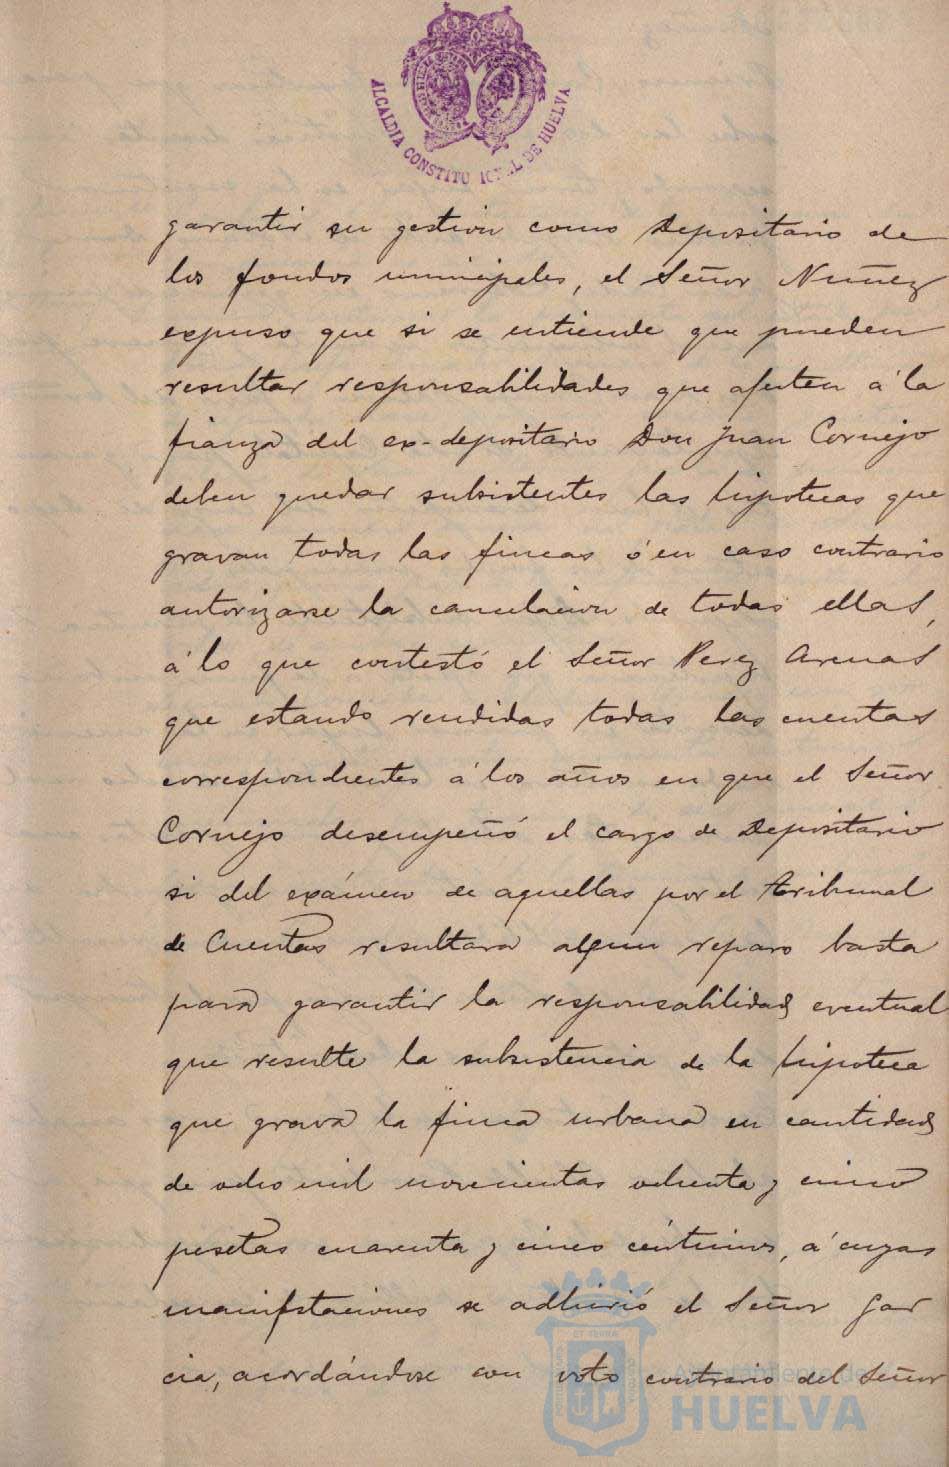 ALCALDIA CONSTITUCIONAL DE HUELVA
garantir su gestion como Depositario de
los fondos municipales, el Señor Nuñez
expuso que si se entiende que pueden
resultar responsabilidades que afecten á la
fianza del ex-depositario Don Juan Cornejo
deben quedar subsistentes las hipotecas que
gravan todas las fincas ó en caso contrario
autorizarse la cancelacion de todas ellas,
á lo que contestó el Señor Perez Arenas
que estando rendidas todas las cuentas
correspondientes á los años en que el Señor
Cornejo desempeñó el cargo de Depositario
si del exámen de aquellas por el Tribunal
de Cuentas resultara algun reparo basta
para garantir la responsabilidad eventual
que resulte la subsistencia de la hipoteca
que grava la finca urbana en cantidad
de ocho mil novecientas ochenta y cinco
pesetas cuarenta y cinco céntimos, á cuyas
manifestaciones se adhirió el Señor Gar
cia, acordándose con voto contrario del Señor
Ayuntamiento de
HUELVA